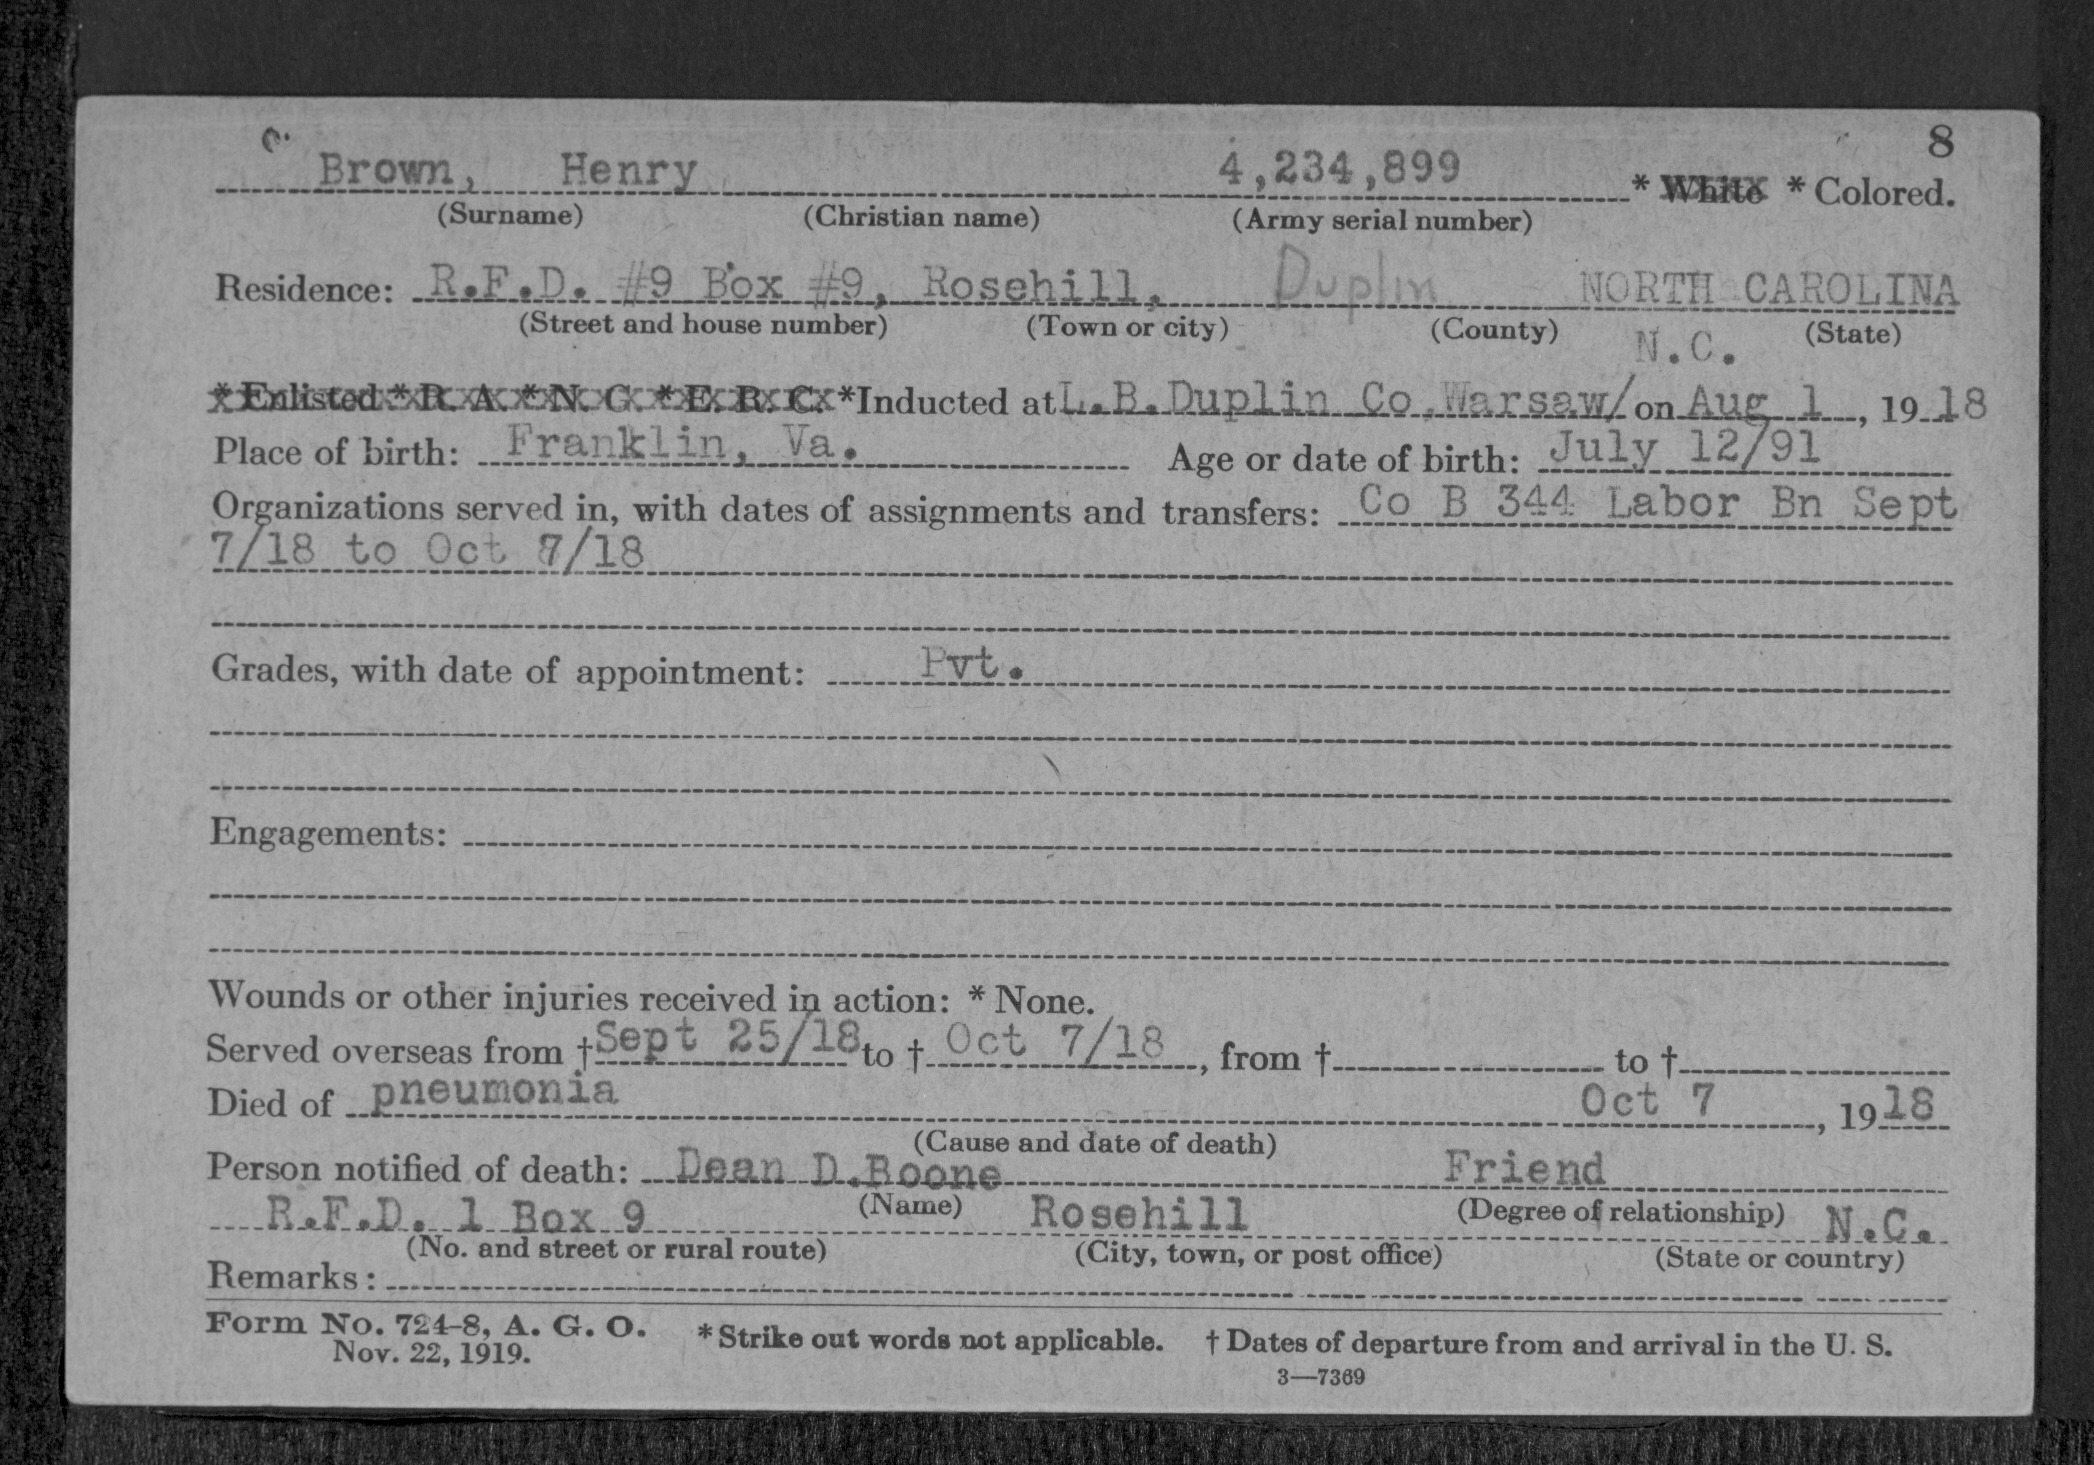 c.
8
Brown, Henry 4,234,899 * White * Colored.
(Surname) (Christian name) (Army serial number)
Residence: R.F.D. #9 Box #9, Rosehill, Duplin NORTH CAROLINA
(Street and house number) (Town or city) (County) (State)
N.C.
* Enlisted * R. A. * N. G. * E. R. C. *Inducted at L.B.Duplin Co.Warsaw/ on Aug 1, 1918
Place of birth: Franklin, Va. Age or date of birth: July 12/91
Organizations served in, with dates of assignments and transfers: Co B 344 Labor Bn Sept
7/18 to Oct 7/18
Grades, with date of appointment: Pvt.
Engagements:
Wounds or other injuries received in action: * None.
Served overseas from † Sept 25/18 to † Oct 7/18, from † to †
Died of pneumonia Oct 7, 1918
(Cause and date of death)
Person notified of death: Dean D.Boone Friend
(Name) (Degree of relationship)
R.F.D. 1 Box 9 Rosehill N.C.
(No. and street or rural route) (City, town, or post office) (State or country)
Remarks:
Form No. 724-8, A. G. O. * Strike out words not applicable. † Dates of departure from and arrival in the U. S.
Nov. 22, 1919.
3—7369